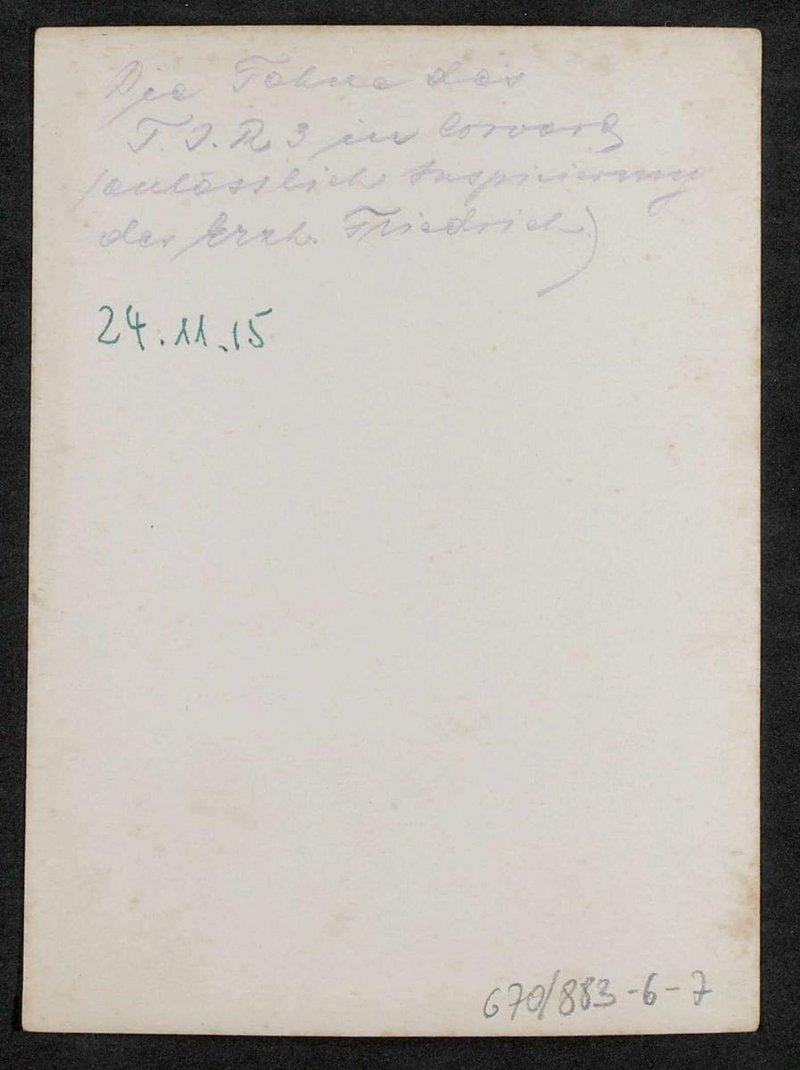 Die Fahne des
T.J.R. 3 in Corvara
(anlässlich Inspizierung
des Erzh. Friedrich)
24.11.15
670/883-6-7